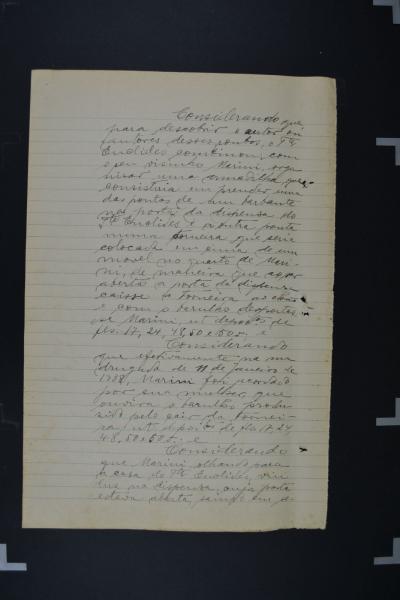 Considerando que
para descobrir o autor ou
autores desses roubos, o Tte
Euclides combinou, com
o seu visinho Marini, orga
nisar uma armadilha que
consistia em prender uma
das pontas de um barbante
na porta da dispensa do
Tte Euclides e a outra ponta
numa torneira que seria
colocada em cima de um
movel no quarto de Mari-
ni, de maneira que ao ser
aberta a porta da dispensa
caisse a torneira ao chão
e com o barulho despertas-
se Marini, ut depoitos de
fls. 17, 24, 48, 50 e
Considerando
que efetivamente na ma
drugada de 11 de janeiro de
Marini foi acordado
por sua mulher que
ouvira o barulho produ-
sido pelo cair da tornei-
ra, ut depoitos de fls. 17, 24,
48, 50 e
Considerando
que Marini olhando para
a casa do Tte Euclides, viu
luz na dispensa, cuja porta
estava aberta,